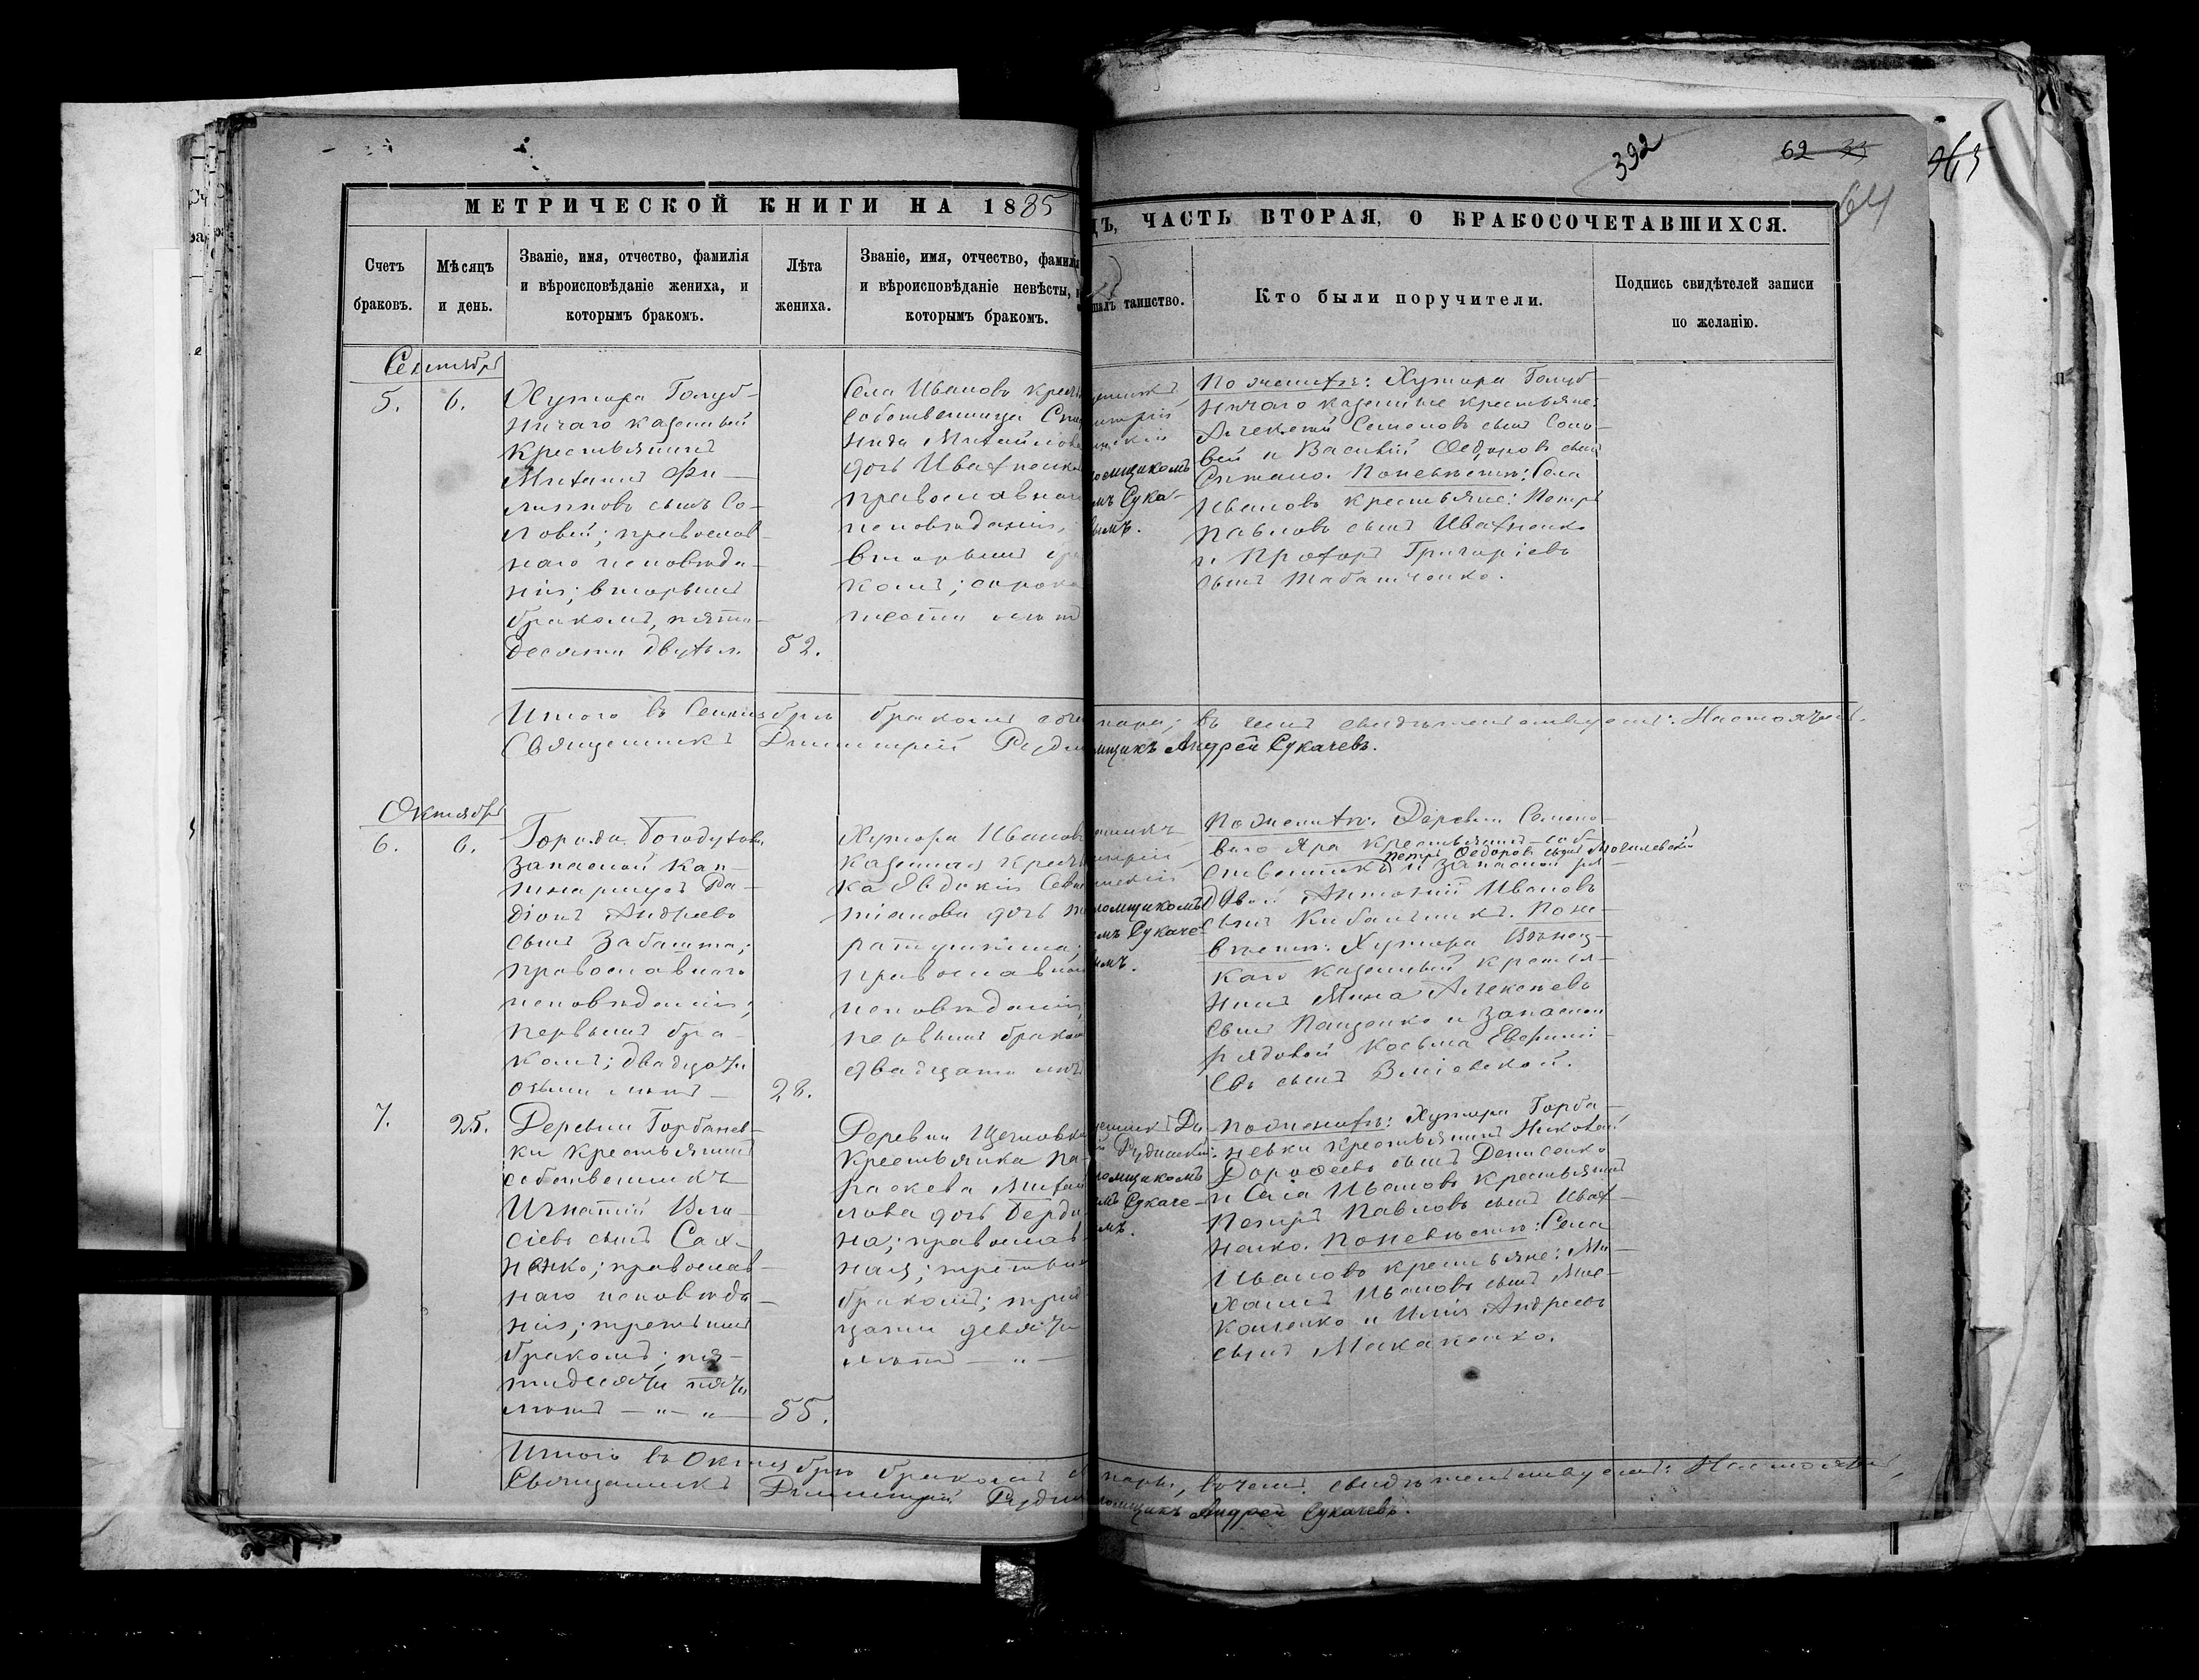 392
62
64
МЕТРИЧЕСКОЙ КНИГИ НА 1885
ДЪ, ЧАСТЬ ВТОРАЯ, О БРАКОСОЧЕТАВШИХСЯ.
Счетъ
браковъ.
Мѣсяцъ
и день.
Званіе, имя, отчество, фамилія
и вѣроисповѣданіе жениха, и
которымъ бракомъ.
Лѣта
жениха.
Званіе, имя, отчество, фамилія
и вѣроисповѣданіе невѣсты, и
которымъ бракомъ.
шалъ таинство.
Кто были поручители.
Подпись свидѣтелей записи
по желанію.
Сентябрь
5.
6.
Хутора Голуб-
ничаго казенный
крестьянинъ
Михаилъ Фи-
липповъ сынъ Со-
ловей; православ-
наго исповѣда-
нія; вторымъ
бракомъ, пяти-
десяти двухъ л.
52.
Села Ивановъ крест
собственница
нида Михайлова
дочь Ивахненко
православнаго
исповѣданія,
вторымъ бра
комъ; сорока
шести лѣтъ
омщикомъ
мъ Сука-
вымъ.
По женихѣ: Хутора Голуб-
ничаго казенные крестьяне:
Алексѣй Семеновъ сынъ Соло-
вей и Василій Ѳедоровъ сынъ
По невѣстѣ: Села
Ивановъ крестьяне: Петръ
Павловъ сынъ Ивахненко
и Прохоръ Григоріевъ
сынъ Табатченко.
Итого въ Сентябрѣ бракомъ соче
пара; въ чемъ свидѣтельствуемъ: Настоятель,
Священникъ Димитрій Рудин
мщикъ Андрей Сукачевъ.
Октябрь
6.
6.
Города Богодухова
запасной кап-
тенармусъ Ра-
діонъ Андреевъ
сынъ Забашта;
православнаго
исповѣданія;
первымъ бра-
комъ; двадцати
осьми лѣтъ
28.
Хутора Иванов
казенная крестьян
ка Евдокія Севас
тіанова дочь
православнаго
исповѣданія,
первымъ бракомъ
двадцати лѣтъ
ломщикомъ
мъ Сукаче-
ымъ.
По женихѣ: Деревни Семено-
ваго Яра крестьянинъ-соб-
Петръ Ѳедоровъ сынъ Могилевскій
ственникъ и запасной ря-
довой Антоній Ивановъ
сынъ Кибальникъ. По не-
вѣстѣ: Хутора Вѣнец-
каго казенный крестья-
нинъ Мина Алексѣевъ
сынъ Пащенко и запасной
рядовой Косьма Евфимі-
евъ сынъ
7.
25.
Деревни Горбанев-
ки крестьянинъ
собственникъ
Игнатій Вла-
сіевъ сынъ Сах-
ненко; православ-
наго исповѣда-
нія; третьимъ
бракомъ; пя-
тидесяти пяти
лѣтъ — „ — „ —
55.
Деревни Щегловки
крестьянка Па-
раскева Михай
лова дочь Берди
на; православ
ная; третьимъ
бракомъ; трид
цати девяти
лѣтъ — „ —
щенникъ Ди-
й Рудинскій
ломщикомъ
мъ Сукаче-
мъ.
По женихѣ: Хутора Горба-
невки крестьянинъ Николай
Дороѳеевъ сынъ Денисенко
и Села Ивановъ крестьянинъ
Петръ Павловъ сынъ Ивах-
ненко. По невѣстѣ: Села
Ивановъ крестьяне: Ми-
хаилъ Ивановъ сынъ
и Илія Андреевъ
сынъ Макаренко.
Итого въ Октябрѣ бракомъ
пары, въ чемъ свидѣтельствуемъ: Настоятель,
Священникъ Димитрій Рудин
ломщикъ Андрей Сукачевъ.